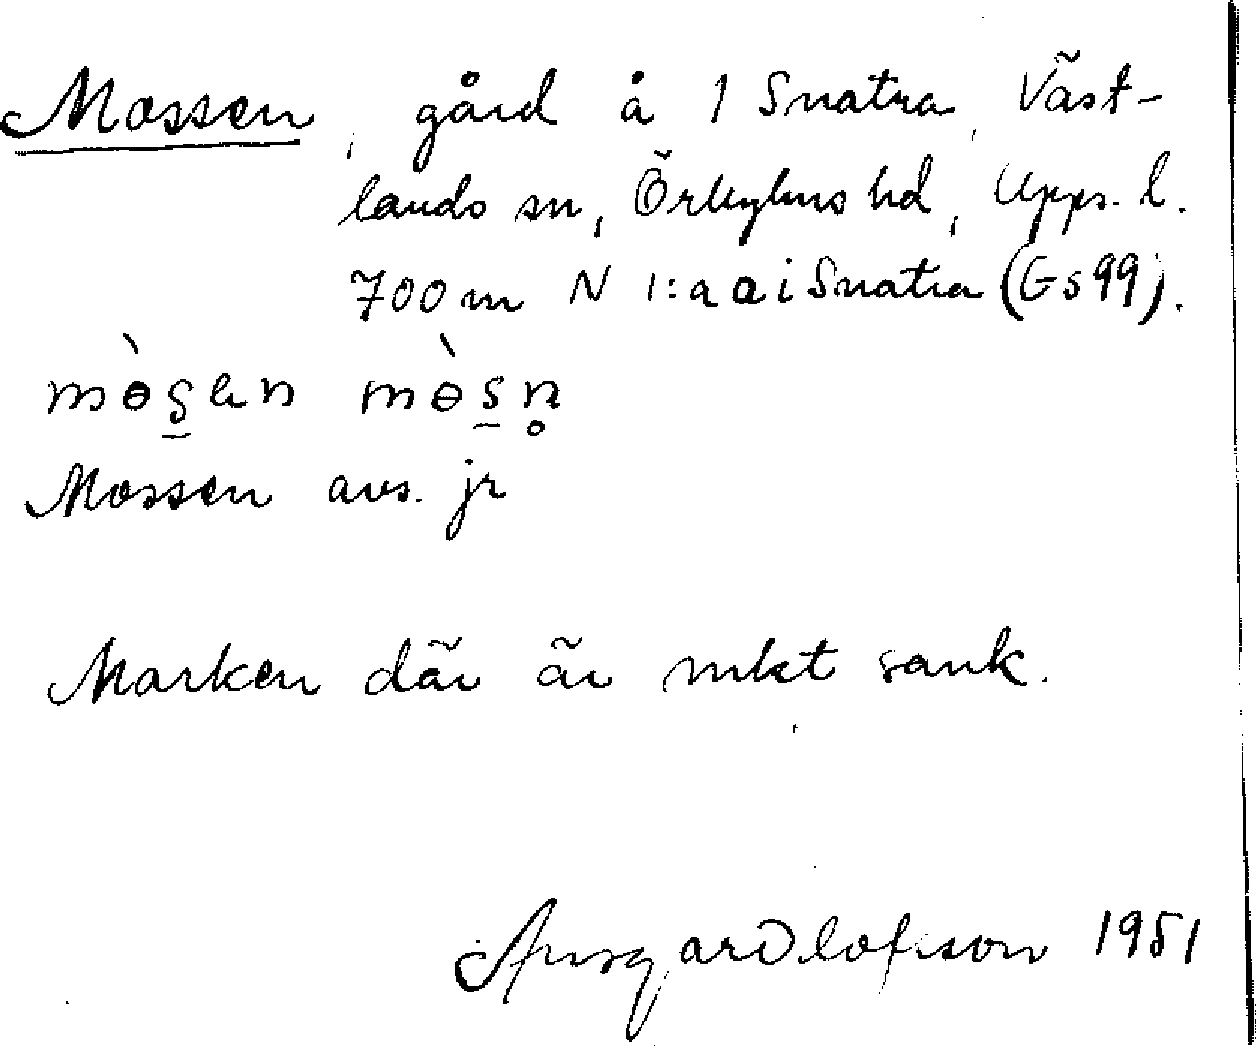 Mossen, gård å 1 Snatra, Väst-
lands sn, Örbyhus hd, Upps. l.
700 m N 1:a a i Snatra (Gs 99).
mɵ̀s̠en mɵ̀s̠n̥
Mossen avs. jr
Marken där är mkt sank.
Ansgar Olofsson 1951